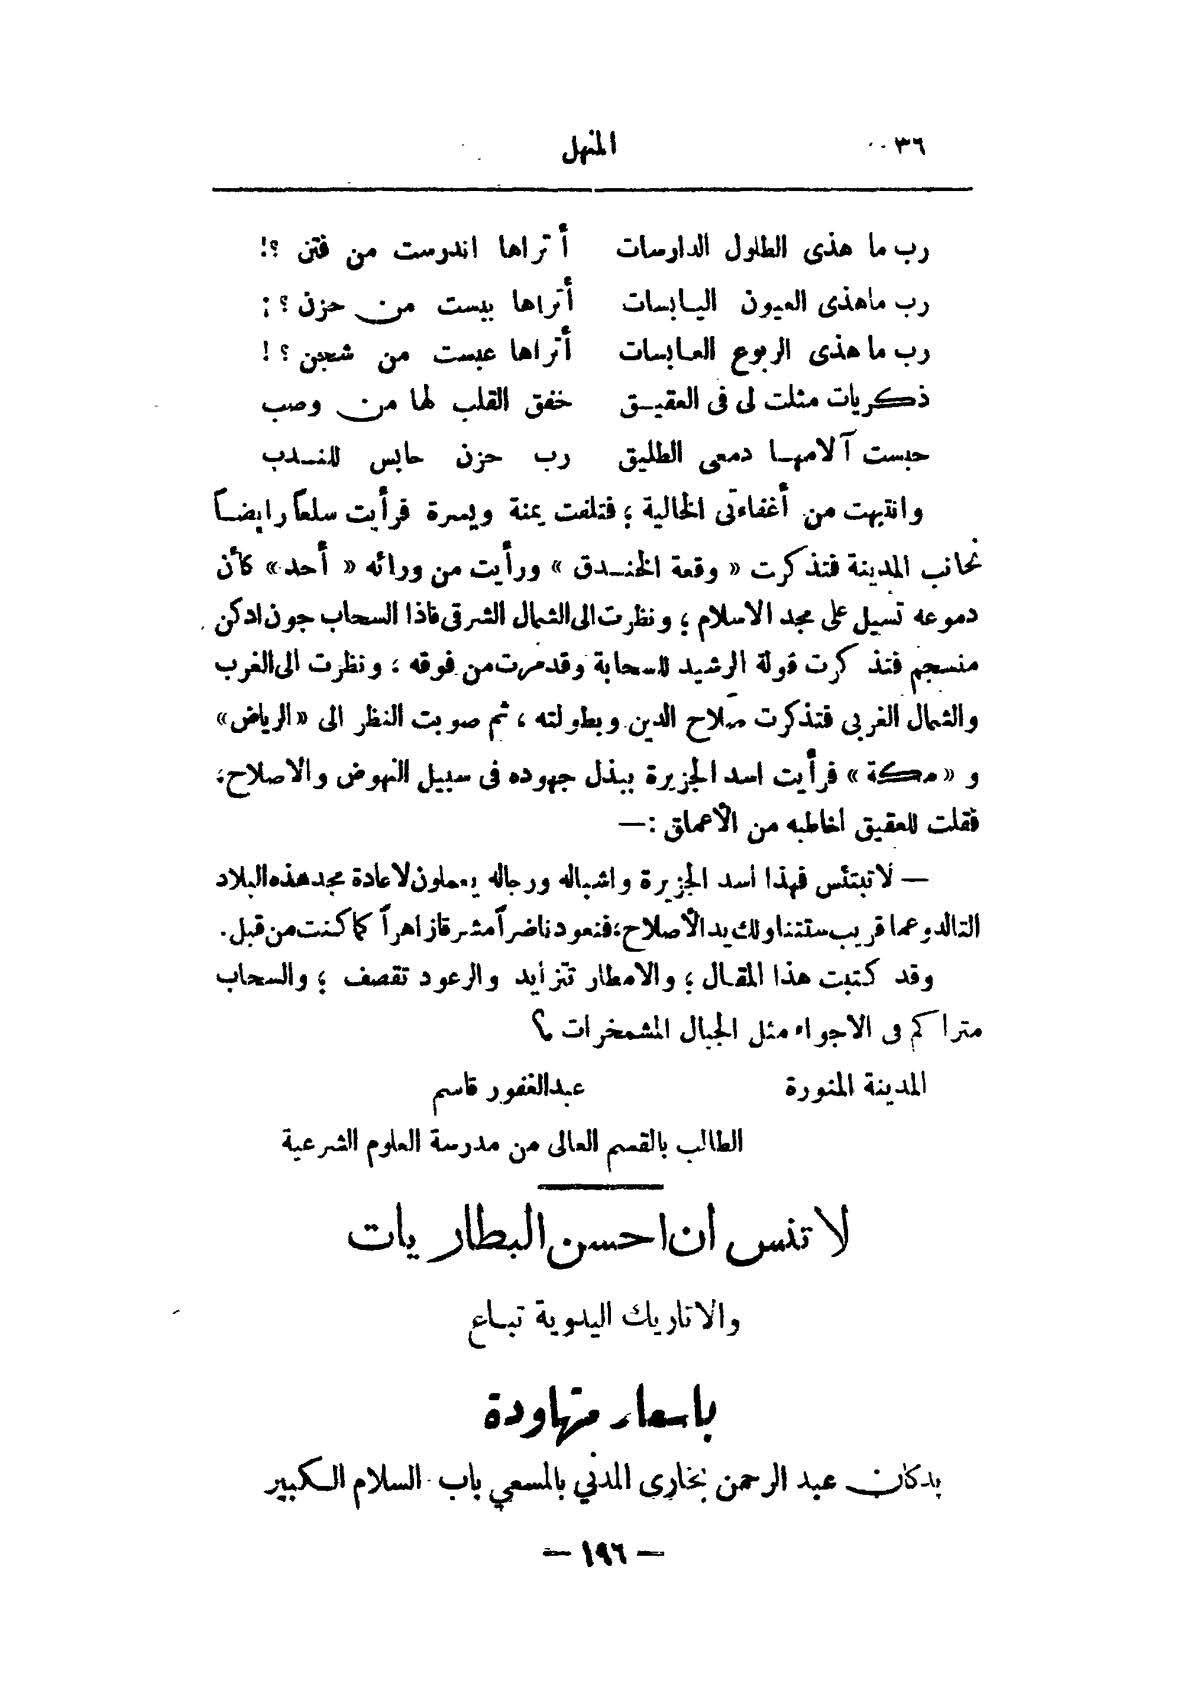 ٣٦ المنهل
رب ما هذى الطلول الدارسات أتراها اندرست من فتن ؟!
رب ماهذى العيون اليابسات أتراها يبست من حزن ؟ !
رب ما هذى الربوع العابسات أتراها عبست من شجن ؟ !
ذكريات مثلت لى فى العقيق خفق القلب لها من وصب
حبست آلامها دمعى الطليق رب حزن حابس للندب
وانتبهت من أغفاءتى الخالية ؛ فتلفت يمنة ويسرة فرأيت سلعاً رابضاً
بجانب المدينة فتذكرت « وقعة الخندق » ورأيت من ورائه « أحد » كأن
دموعه تسيل على مجد الاسلام ؛ ونظرت الى الشمال الشرقى فاذا السحاب جون ادكن
منسجم فتذكرت قولة الرشيد للسحابة وقد مرت من فوقه ؛ ونظرت الى الغرب
والشمال الغربى فتذكرت صلاح الدين وبطولته ، ثم صوبت النظر الى «الرياض»
و « مكة » فرأيت اسد الجزيرة يبذل جهوده فى سبيل النهوض والاصلاح ،
فقلت للعقيق اخاطبه من الأعماق :—
— لا تبتئس فهذا أسد الجزيرة واشباله ورجاله يعملون لاعادة مجد هذه البلاد
التالد وعما قريب ستتناولك يد الأصلاح ، فنعود ناضراً مشرقا زاهراً كما كنت من قبل .
وقد كتبت هذا المقال ؛ والامطار تتزايد والرعود تقصف ؛ والسحاب
متراكم فى الاجواء مثل الجبال المشمخرات م؟
المدينة المنورة عبدالغفور قاسم
الطالب بالقسم العالى من مدرسة العلوم الشرعية
لا تنس أن احسن البطاريات
والاتاريك اليدوية تباع
باسعار متهاودة
بدكان عبد الرحمن بخارى المدني بالمسعي باب السلام الكبير
— ١٩٦ —